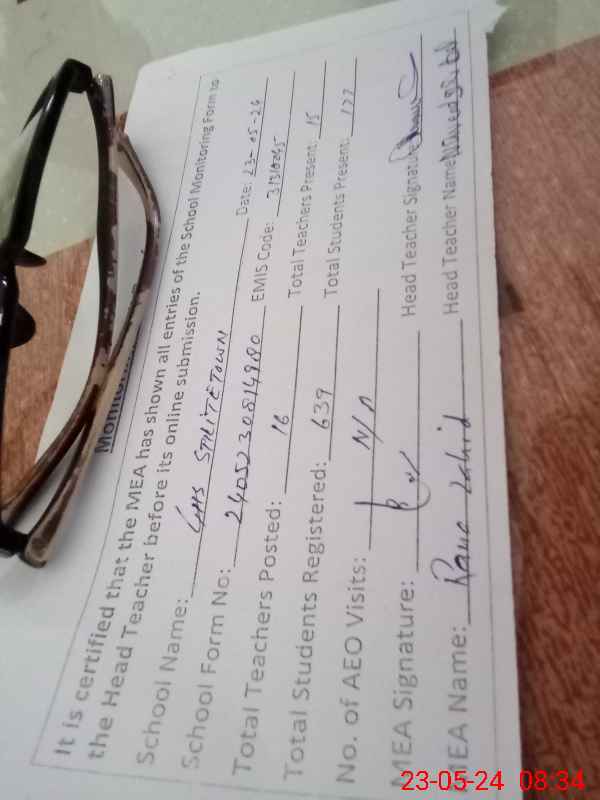 It is certified that the MEA has shown all entries of the School Monitoring Form to
the Head Teacher before its online submission.
School Name: GHS STLITETOWN Date: 23-05-24
School Form No: EMIS Code:
Total Teachers Posted: 16 Total Teachers Present: 15
Total Students Registered: 639 Total Students Present:
No. of AEO Visits: N/A
MEA Signature: Head Teacher Signature
MEA Name: Rana Zahid Head Teacher Name
23-05-24 08:34